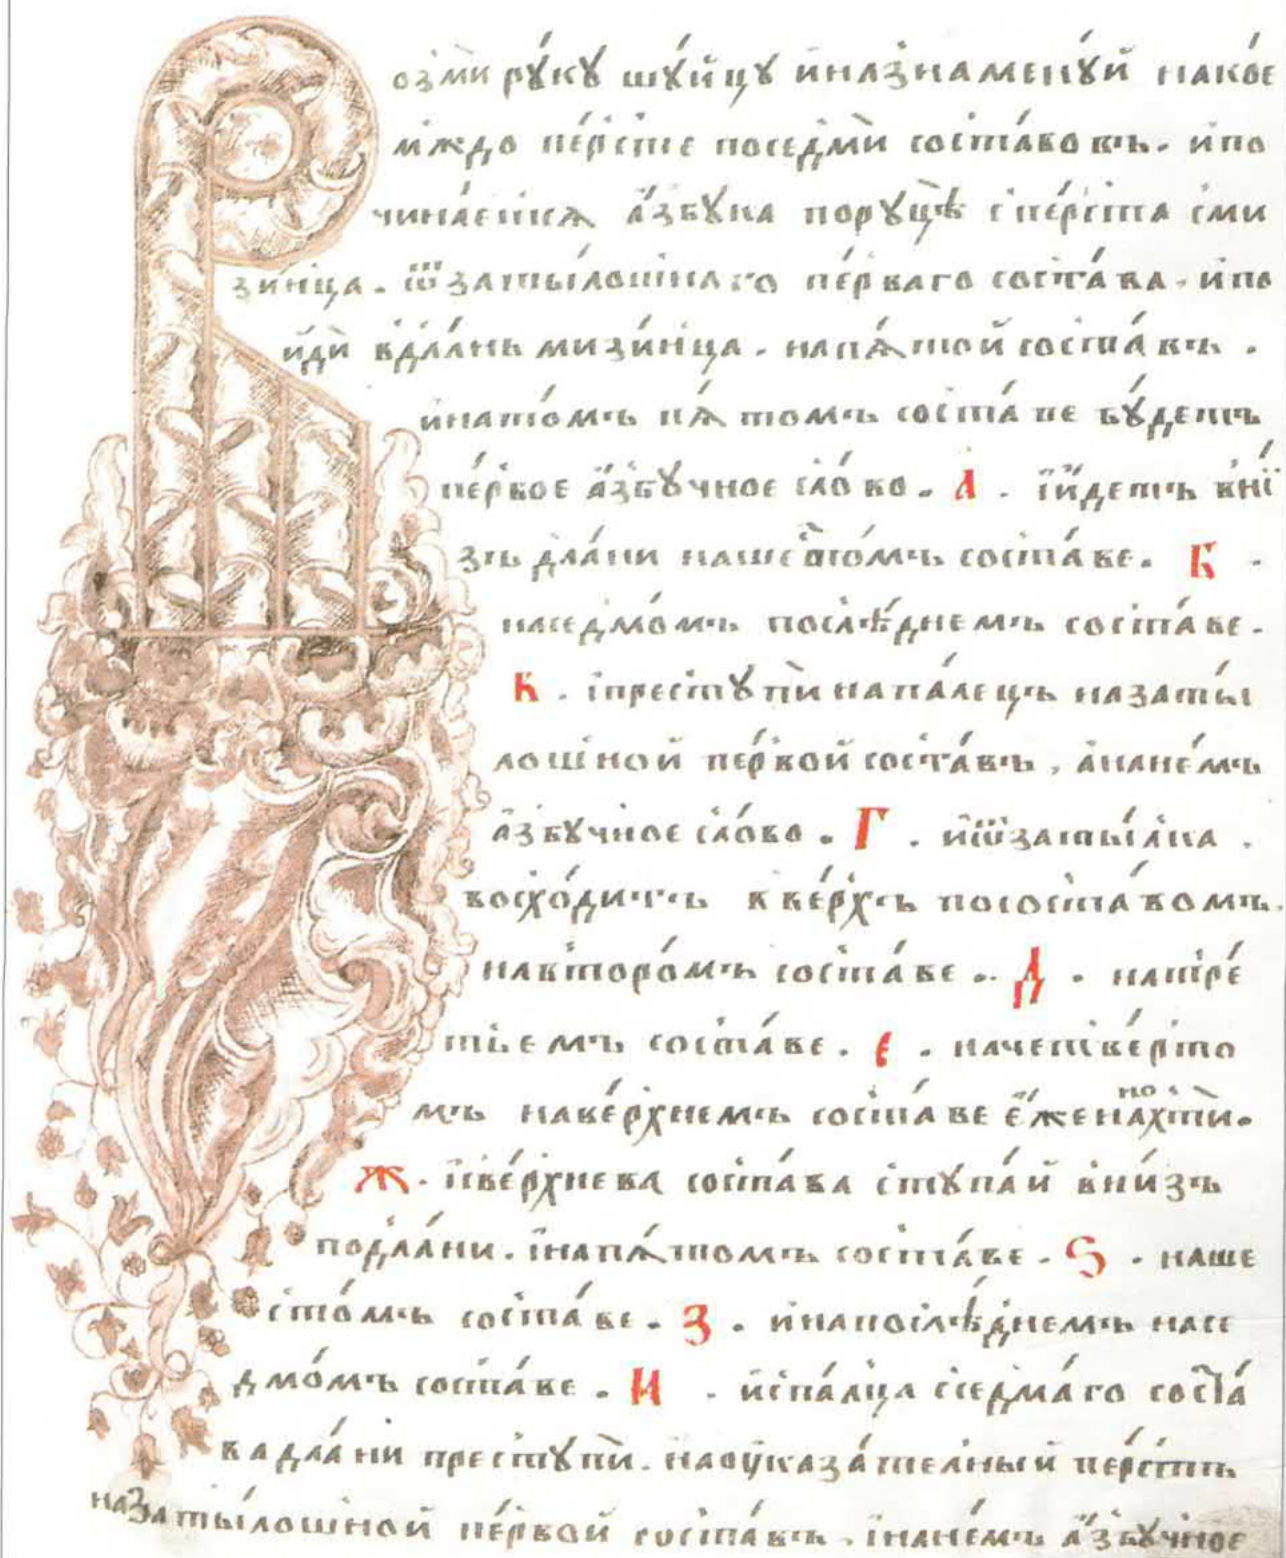 озми́ рꙋ́кꙋ шꙋ́йцꙋ и҆назнаменꙋ́й накое́
мждо пе́рсте поседми́ соста́вовъ. и҆по
чина́етсѧ а҆́збꙋка порꙋцѣ̀ спе́рста сми
зи́нца. ѿзаты́лошнаго пе́рваго соста́ва. и҆по
йди̇̀ вдла́нь мизи́нца. напѧ́той соста́въ.
и҆нато́мъ пѧ́томъ соста́ве бꙋ́детъ
пе́рвое а҆́збꙋчное сло́во. А. і҆и҆́детъ вни́
зъ дла́ни нашесто́мъ соста́ве. Б.
наседмо́мъ послѣ́днемъ соста́ве.
В. і҆престꙋпи̇̀ напа́лецъ назаты́
лошной пе́рвой соста́въ, а҆нане́мъ
а҆́збꙋчное сло́во. Г. и҆ѿзаты́лка.
восхо́дитъ вве́рхъ пососта́вомъ.
навторо́мъ соста́ве.. Д. натре́
тьемъ соста́ве. Е. начетве́рто
мъ наве́рхнемъ соста́ве е҆́же нахти̇̀.
Ж. і҆све́рхнева соста́ва стꙋпа́й вни́зъ
подла́ни. і҆напѧ́томъ соста́ве. Ѕ. наше
сто́мъ соста́ве. З. и҆напослѣ́днемъ насе
дмо́мъ соста́ве. И. и҆спа́лца сседма́го соста́
ва дла́ни престꙋпи̇̀. наоу҆каза́телный пе́рстъ
назаты́лошной пе́рвой соста́въ. і҆нане́мъ а҆́збꙋчное